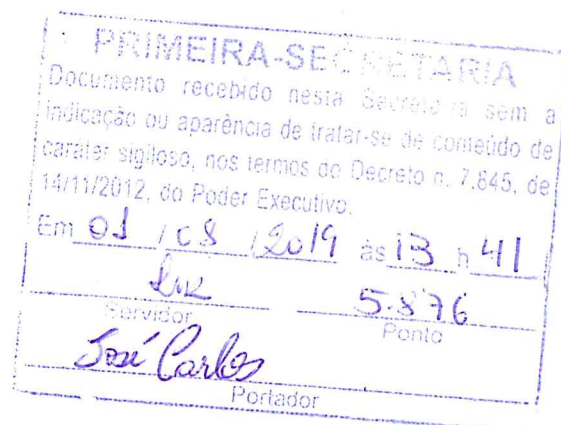 PRIMEIRA-SECRETARIA
Documento recebido nesta Secretaria sem a
indicação ou aparência de tratar-se de conteúdo de
caráter sigiloso, nos termos do Decreto n. 7.845, de
14/11/2012, do Poder Executivo.
Em 01 / 08 / 2019 às 13 h 41
5.876
Servidor Ponto
José Carlos
Portador